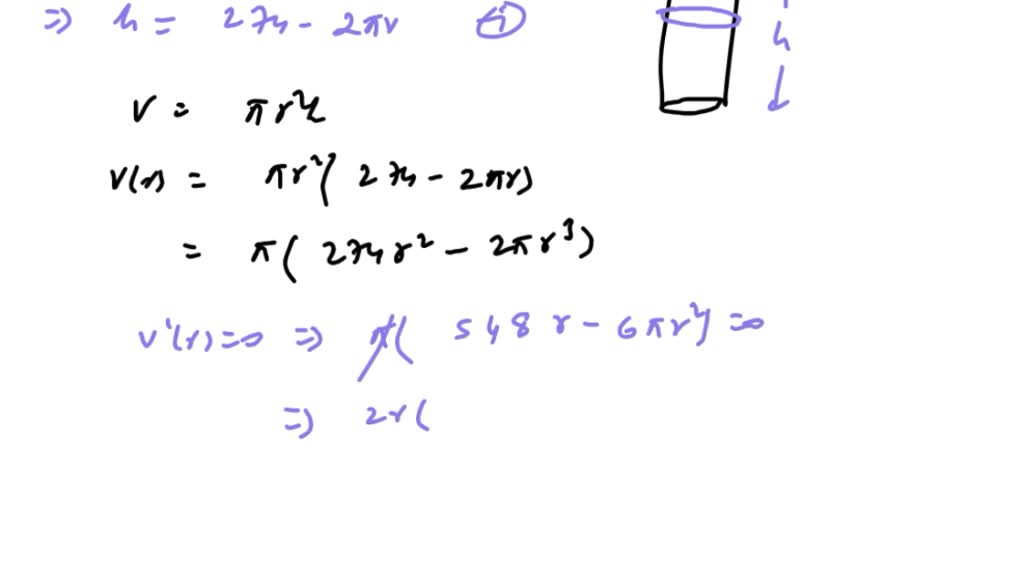 ⇒ h = 274 - 2πr ①
h
V = πr²h
V(r) = πr²( 274 - 2πr)
= π( 274r² - 2πr³)
V'(r)=0 ⇒ π( 548 r - 6πr²) =0
⇒ 2r(